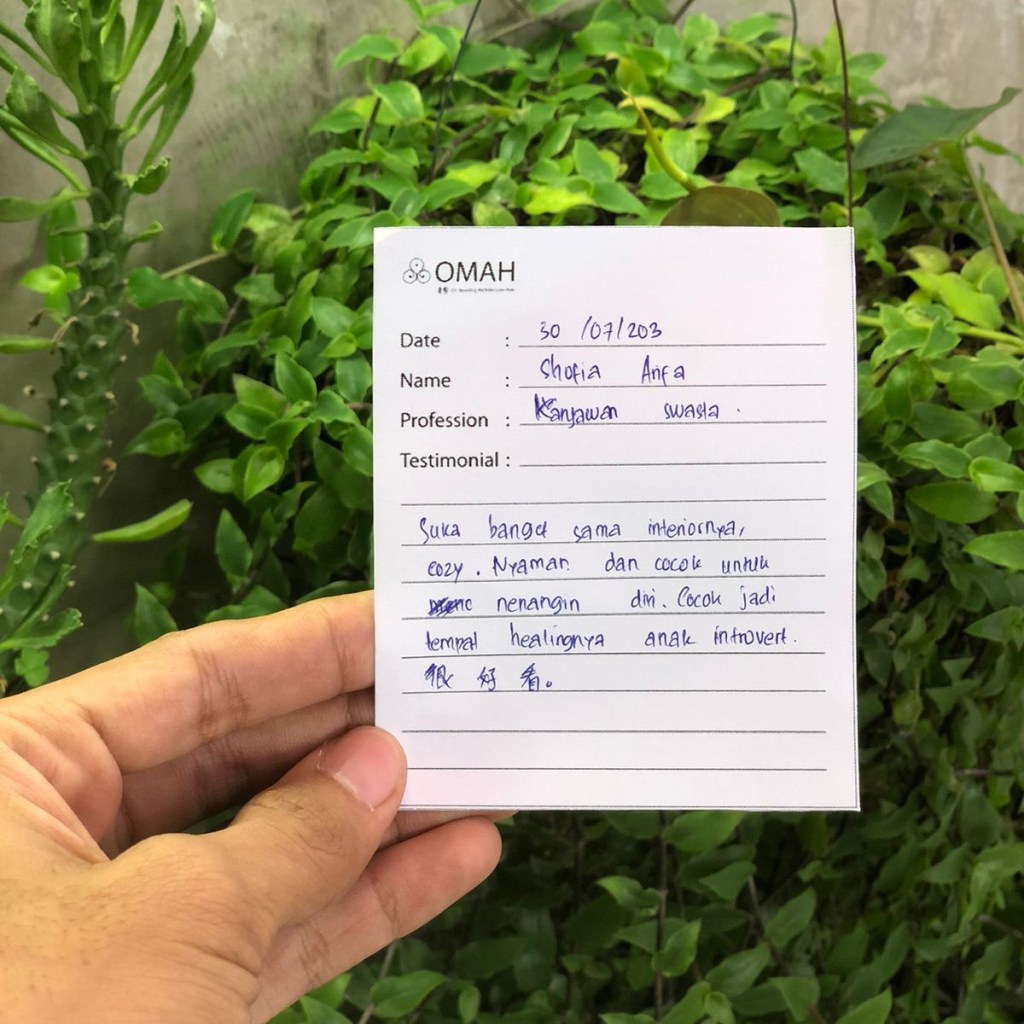 OMAH
Date : 30 /07/203
Name : Shofia Anfa
Profession : Karyawan swasta .
Testimonial :
Suka banget sama interiornya,
cozy . Nyaman dan cocok untuk
nenangin diri. Cocok jadi
tempat healingnya anak introvert.
很 好 看。